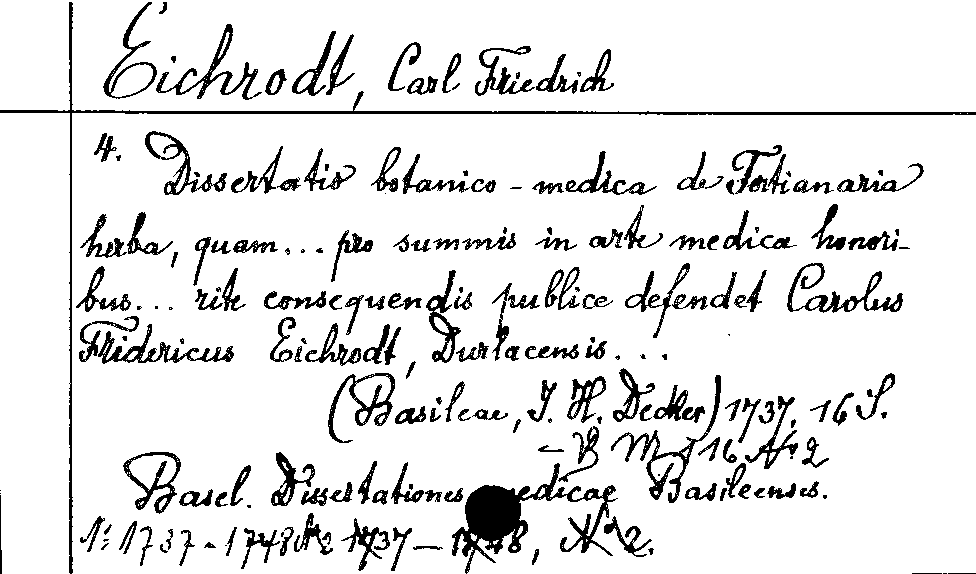 Eichrodt, Carl Friedrich
4. Dissertatio botanico-medica de Fortianaria
herba, quam... pro summis in arte medica honori-
bus... rite consequendis publice defendet Carolus
Fridericus Eichrodt, Durlacensis...
(Basileae, J. H. Decker) 1737. 16 S.
- B M 16 Nr 2
Basel. Dissertationes medicae Basileenses.
1: 1737-1748 Nr 2 1737-1748, Nr 2.